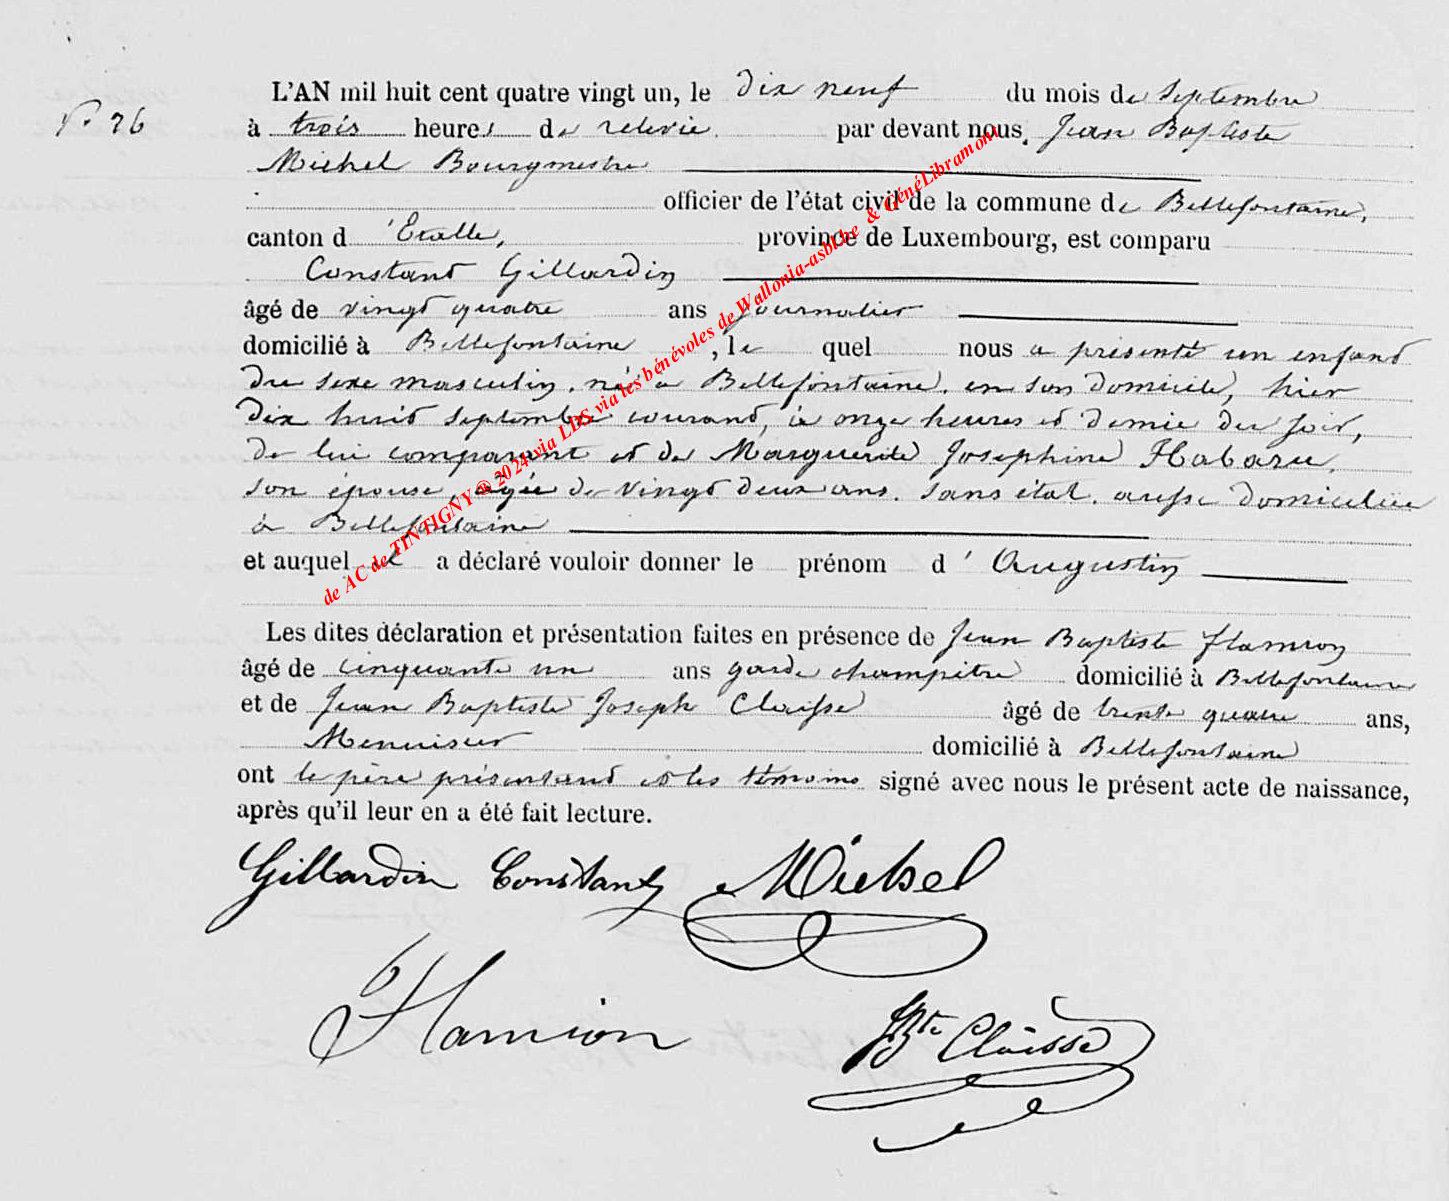 L'AN mil huit cent quatre vingt un, le dix neuf du mois de Septembre
N° 26
à trois heures de relevée par devant nous, Jean Baptiste
Michel Bourgmestre
officier de l'état civil de la commune de Bellefontaine,
canton d'Etalle, province de Luxembourg, est comparu
Constant Gillardin
âgé de vingt quatre ans journalier
domicilié à Bellefontaine, le quel nous a présenté un enfant
du sexe masculin, né à Bellefontaine, en son domicile, hier
dix huit septembre courant, à onze heures et demie du soir,
de lui comparant et de Marguerite Joséphine Habaru,
son épouse, agée de vingt deux ans, sans état, aussi domiciliée
à Bellefontaine
et auquel il a déclaré vouloir donner le prénom d'Augustin
Les dites déclaration et présentation faites en présence de Jean Baptiste Hamion
âgé de cinquante un ans garde champêtre domicilié à Bellefontaine
et de Jean Baptiste Joseph Claisse âgé de trente quatre ans,
Menuisier domicilié à Bellefontaine
ont le père présentant et les témoins signé avec nous le présent acte de naissance,
après qu'il leur en a été fait lecture.
Gillardin Constant Michel
Hamion
JBte Claisse
de AC de TINTIGNY @ 2024 via LDS via les bénévoles de Wallonia-asbl.be & GénéLibramont